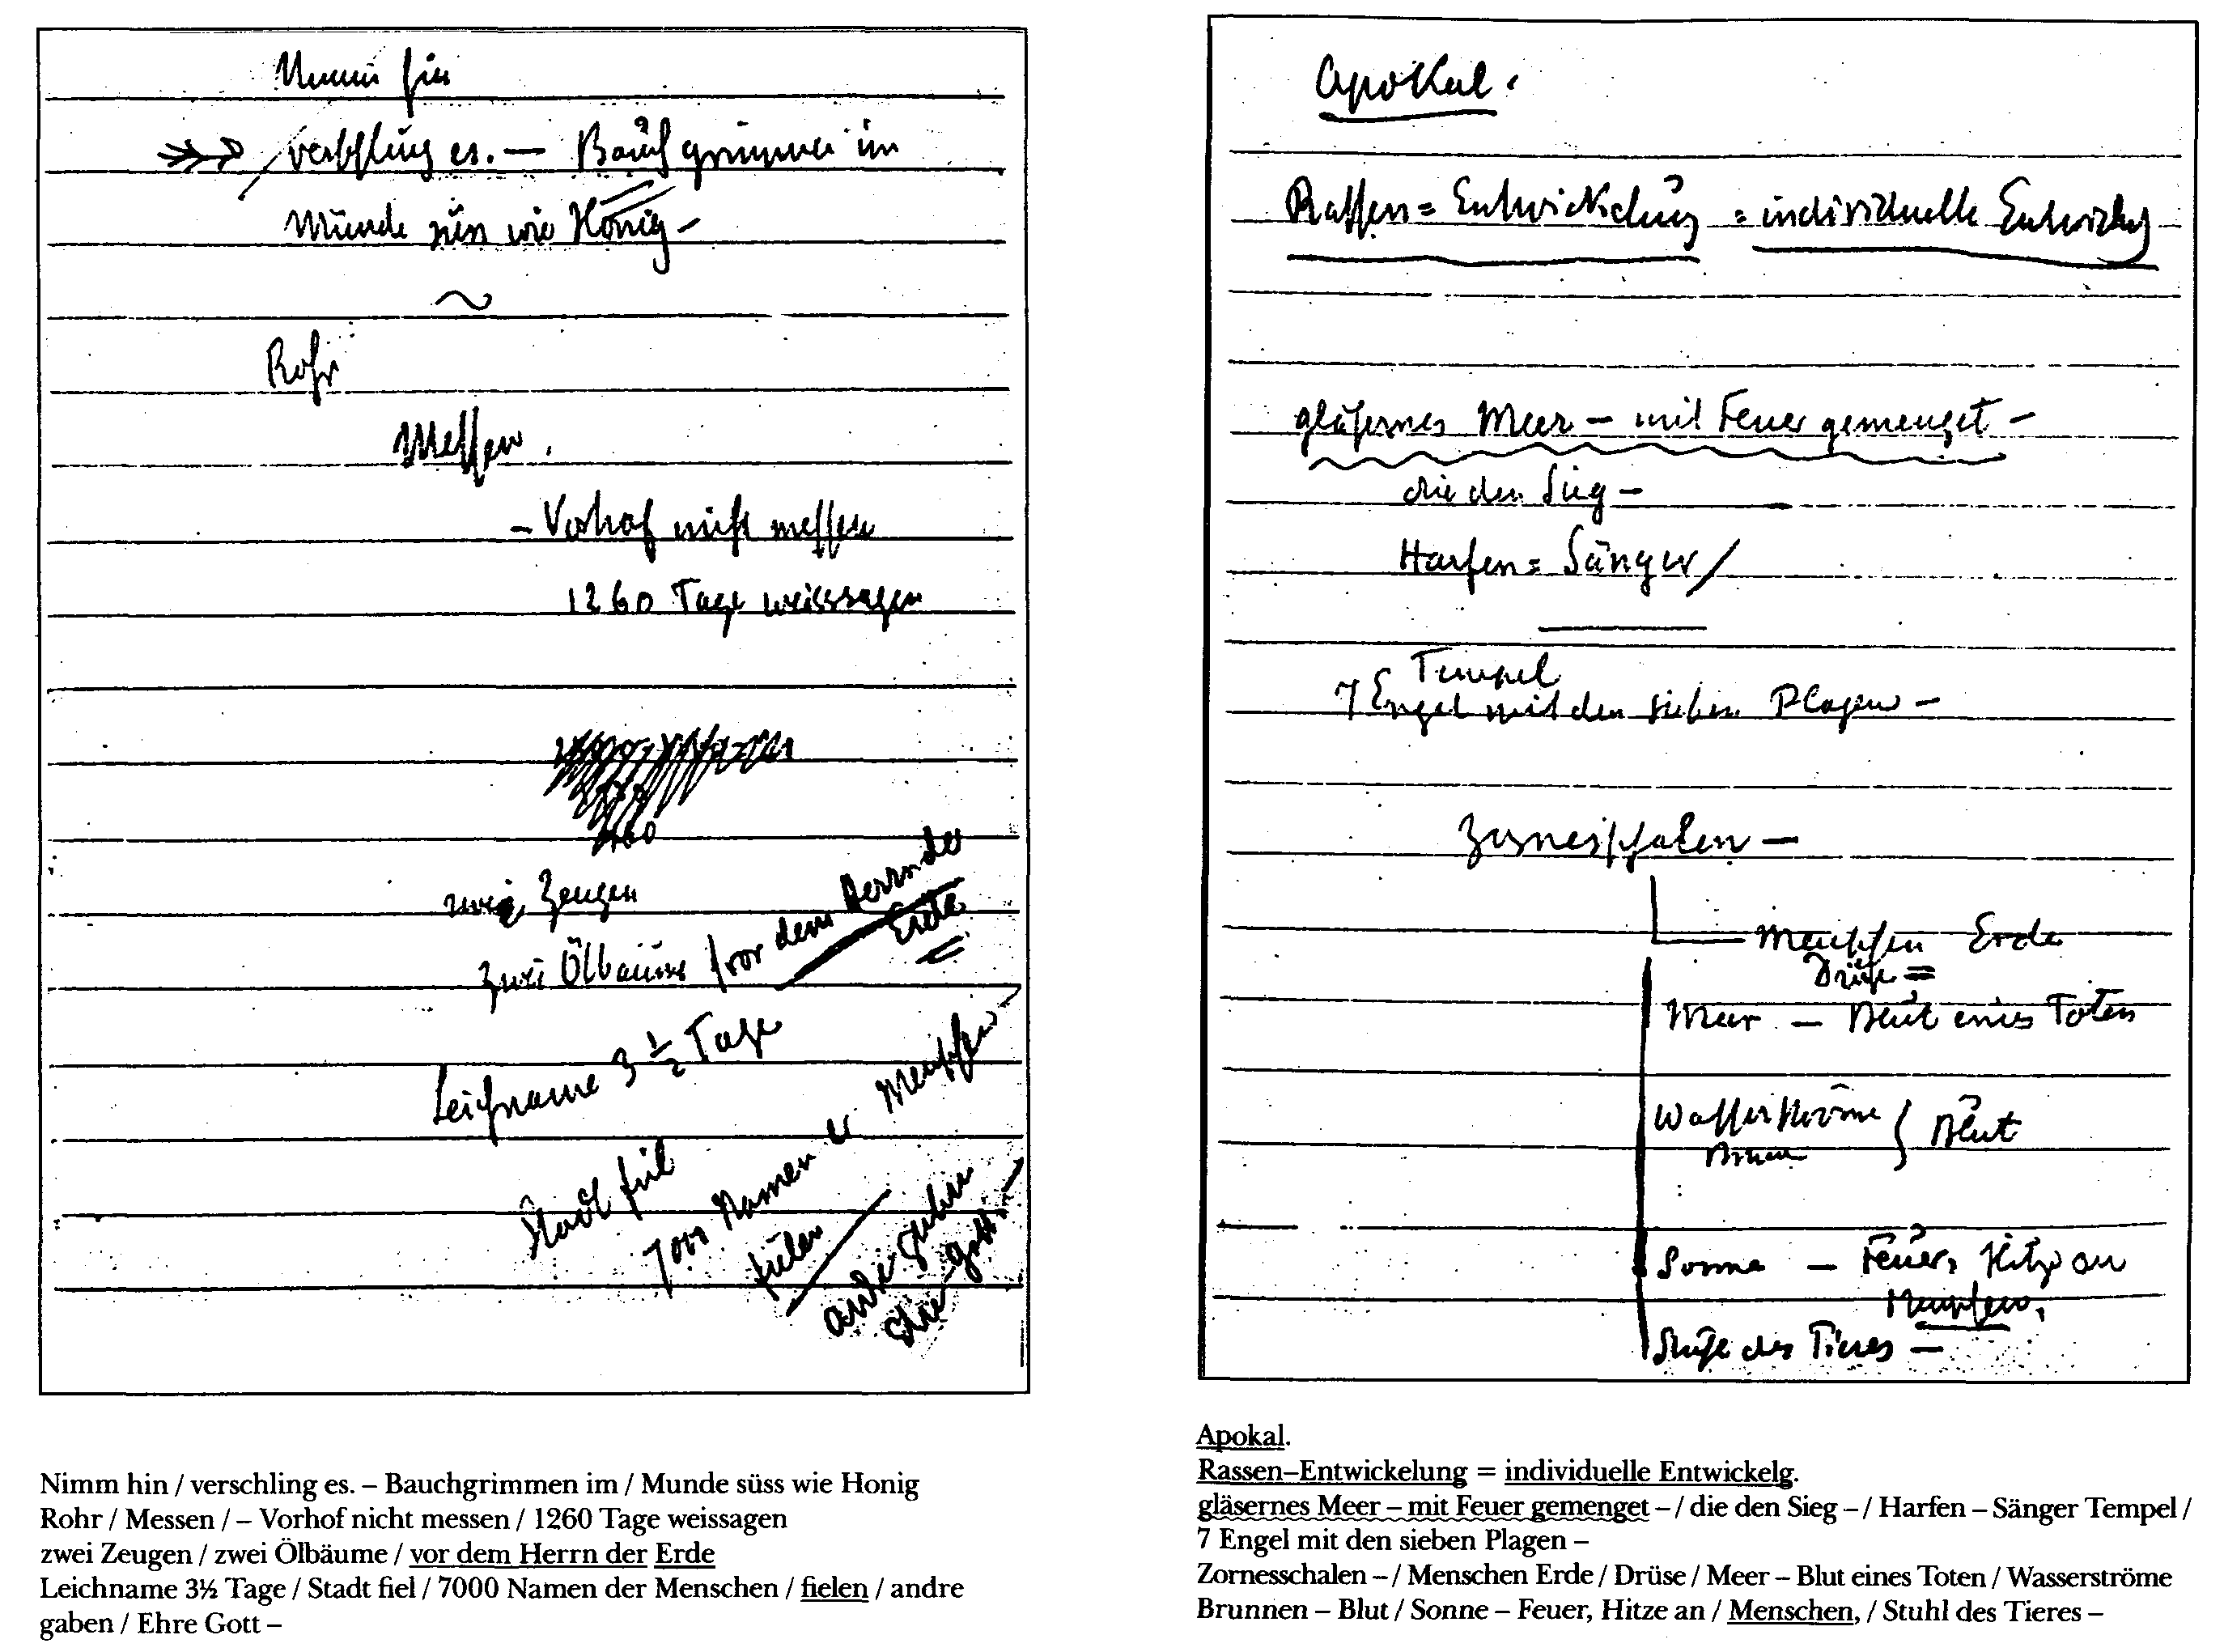 Nimm hin
verschling es. — Bauchgrimmen im
Munde süss wie Honig —
Rohr
Messen.
– Vorhof nicht messen
1260 Tage weissagen
1260
zwei Zeugen
zwei Ölbäume / vor dem Herrn der
Erde
Leichname 3 1/2 Tage
Stadt fiel
7000 Namen d Menschen
fielen
andre gaben
Ehre Gott –
Nimm hin / verschling es. – Bauchgrimmen im / Munde süss wie Honig
Rohr / Messen / – Vorhof nicht messen / 1260 Tage weissagen
zwei Zeugen / zwei Ölbäume / vor dem Herrn der Erde
Leichname 3½ Tage / Stadt fiel / 7000 Namen der Menschen / fielen / andre
gaben / Ehre Gott –
Apokal.
Rassen = Entwickelung = individuelle Entwickelg
gläsernes Meer – mit Feuer gemenget –
die den Sieg –
Harfen = Sänger /
Tempel
7 Engel mit den sieben Plagen –
Zornesschalen –
Menschen Erde
Drüse =
Meer – Blut eines Toten
Wasserströme } Blut
Brunnen
Sonne – Feuer, Hitze an
Menschen,
Stuhl des Tieres –
Apokal.
Rassen–Entwickelung = individuelle Entwickelg.
gläsernes Meer – mit Feuer gemenget – / die den Sieg – / Harfen – Sänger Tempel /
7 Engel mit den sieben Plagen –
Zornesschalen – / Menschen Erde / Drüse / Meer – Blut eines Toten / Wasserströme
Brunnen – Blut / Sonne – Feuer, Hitze an / Menschen, / Stuhl des Tieres –